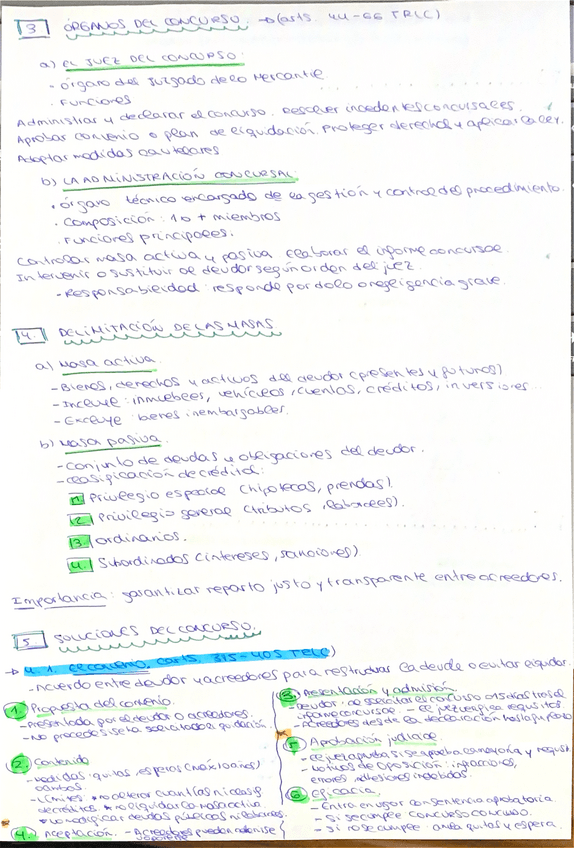 3 ÓRGANOS DEL CONCURSO. → (arts. 44-66 TRLC)
a) EL JUEZ DEL CONCURSO:
- órgano del Juzgado de lo Mercantil
- Funciones
Administrar y declarar el concurso. Resolver incidentes concursales.
Aprobar convenio o plan de liquidación. Proteger derechos y aplicar la ley.
Adoptar medidas cautelares
b) LA ADMINISTRACIÓN CONCURSAL:
• órgano técnico encargado de la gestión y control del procedimiento.
• Composición: 1 o + miembros
• Funciones principales.
Controlar masa activa y pasiva elaborar el informe concursal.
Intervenir o sustituir al deudor según orden del juez.
- Responsabilidad: responde por dolo o negligencia grave.
4. DELIMITACIÓN DE LAS MASAS.
a) Masa activa.
- Bienes, derechos y activos del deudor (presentes y futuros)
- Incluye: inmuebles, vehículos, cuentas, créditos, inversiones...
- Excluye: bienes inembargables.
b) Masa pasiva.
- Conjunto de deudas y obligaciones del deudor.
- Clasificación de créditos:
1. Privilegio especial (hipotecas, prendas).
2. Privilegio general (tributos, laborales).
3. Ordinarios.
4. Subordinados (intereses, sanciones)
Importancia: garantizar reparto justo y transparente entre acreedores.
5 SOLUCIONES DEL CONCURSO.
→ 4.1. El convenio, (arts. 315-405 TRLC)
- Acuerdo entre deudor y acreedores para restruturar la deuda o evitar liquidar.
1. Propuesta del convenio.
- Presentada por el deudor o acreedores.
- No procede si se ha solicitado liquidación.
2. Contenido
- Medidas: quitas, esperas (máx 10 años)
o ambas.
- Límites
4. Aceptación. - Acreedores pueden adherirse
3. Presentación y admisión
5. Aprobación judicial.
6. Eficacia.
- Entra en vigor con sentencia aprobatoria.
- Si se cumple concurso concluido.
- Si no se cumple: anula quitas y espera.